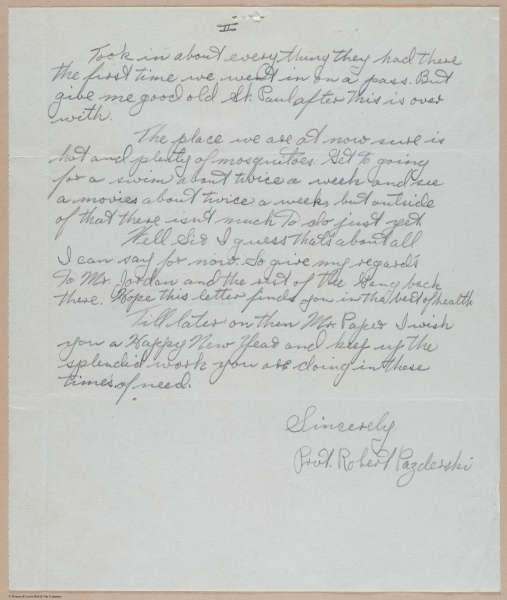 II
Took in about everything they had there
the first time we went in on a pass. But
give me good old St. Paul after this is over
with.
The place we are at now sure is
hot and plenty of mosquitoes. Get to going
for a swim about twice a week and see
a movies about twice a week, but outside
of that there isn't much to do just yet.
Well Sir I guess thats about all
I can say for now. So give my regards
to Mr. Jordan and the rest of the Gang back
there. Hope this letter finds you in the best of health
Till later on then Mr. Paper I wish
you a Happy New Year and keep up the
splendid work you are doing in these
times of need.
Sincerely
Pvt. Robert Pazderski